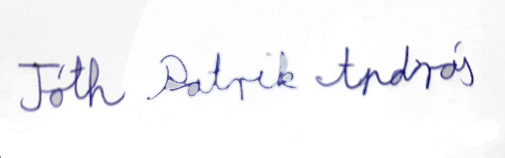 Tóth Patrik András